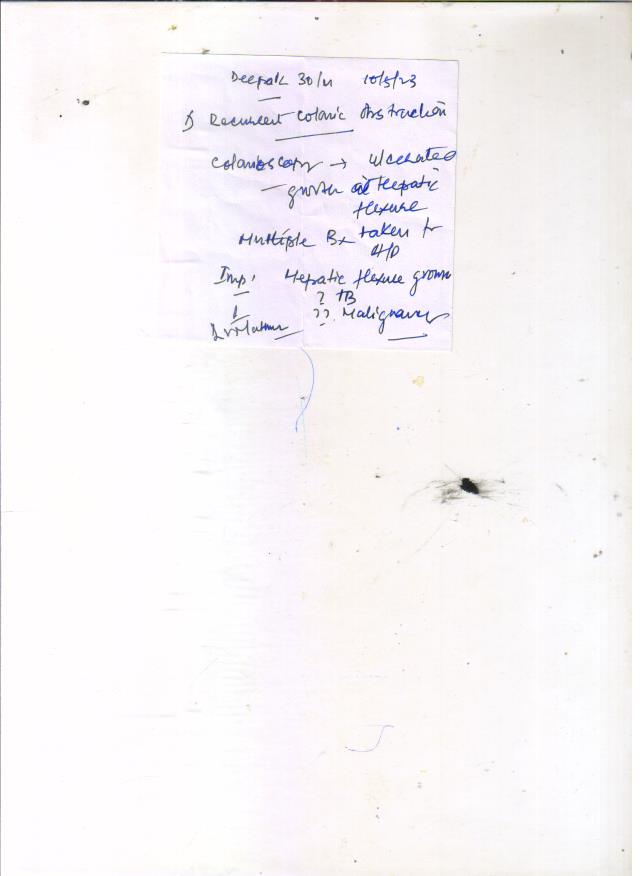 Deepak 30/M 10/5/23
Recurrent Colonic Obstruction
Colonoscopy → ulcerated
growth at Hepatic
flexure
Multiple Bx taken for
HP
Imp. Hepatic flexure growth
? TB
?? Malignancy